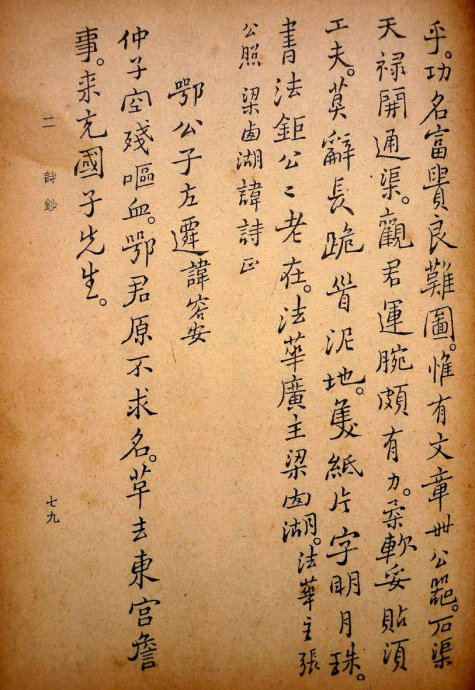 乎。功名富貴良難圖。惟有文章卌公器。石渠
天禄開通渠。觀君運腕頗有力。柔軟妥貼須
工夫。莫辭長跪眢泥地。隻紙片字明月珠。
書法鉅公公老在。法華廣主梁函湖。法華主張
公照 梁函湖諱詩正
鄂公子左遷諱容安
仲子空殘嘔血。鄂君原不求名。革去東宫詹
事。来充國子先生。
二 詩鈔
七九